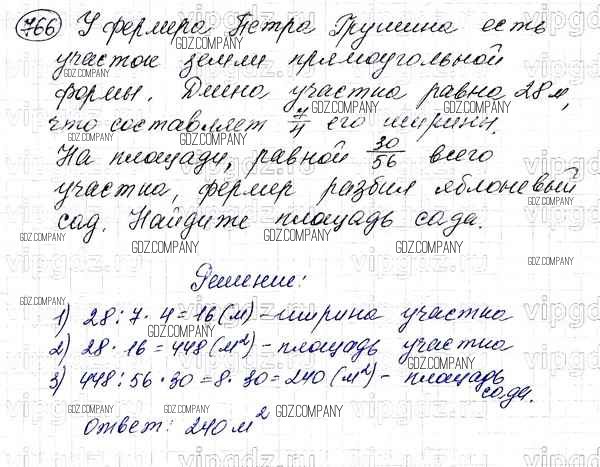 766 У фермера Петра Грушина есть
участок земли прямоугольной
формы. Длина участка равна 28 м,
что составляет 7/4 его ширины.
На площади, равной 30/56 всего
участка, фермер разбил яблоневый
сад. Найдите площадь сада.
Решение:
1) 28 : 7 · 4 = 16 (м) - ширина участка
2) 28 · 16 = 448 (м²) - площадь участка
3) 448 : 56 · 30 = 8 · 30 = 240 (м²) - площадь
сада.
Ответ: 240 м²
GDZ.COMPANY
vipgdz.ru